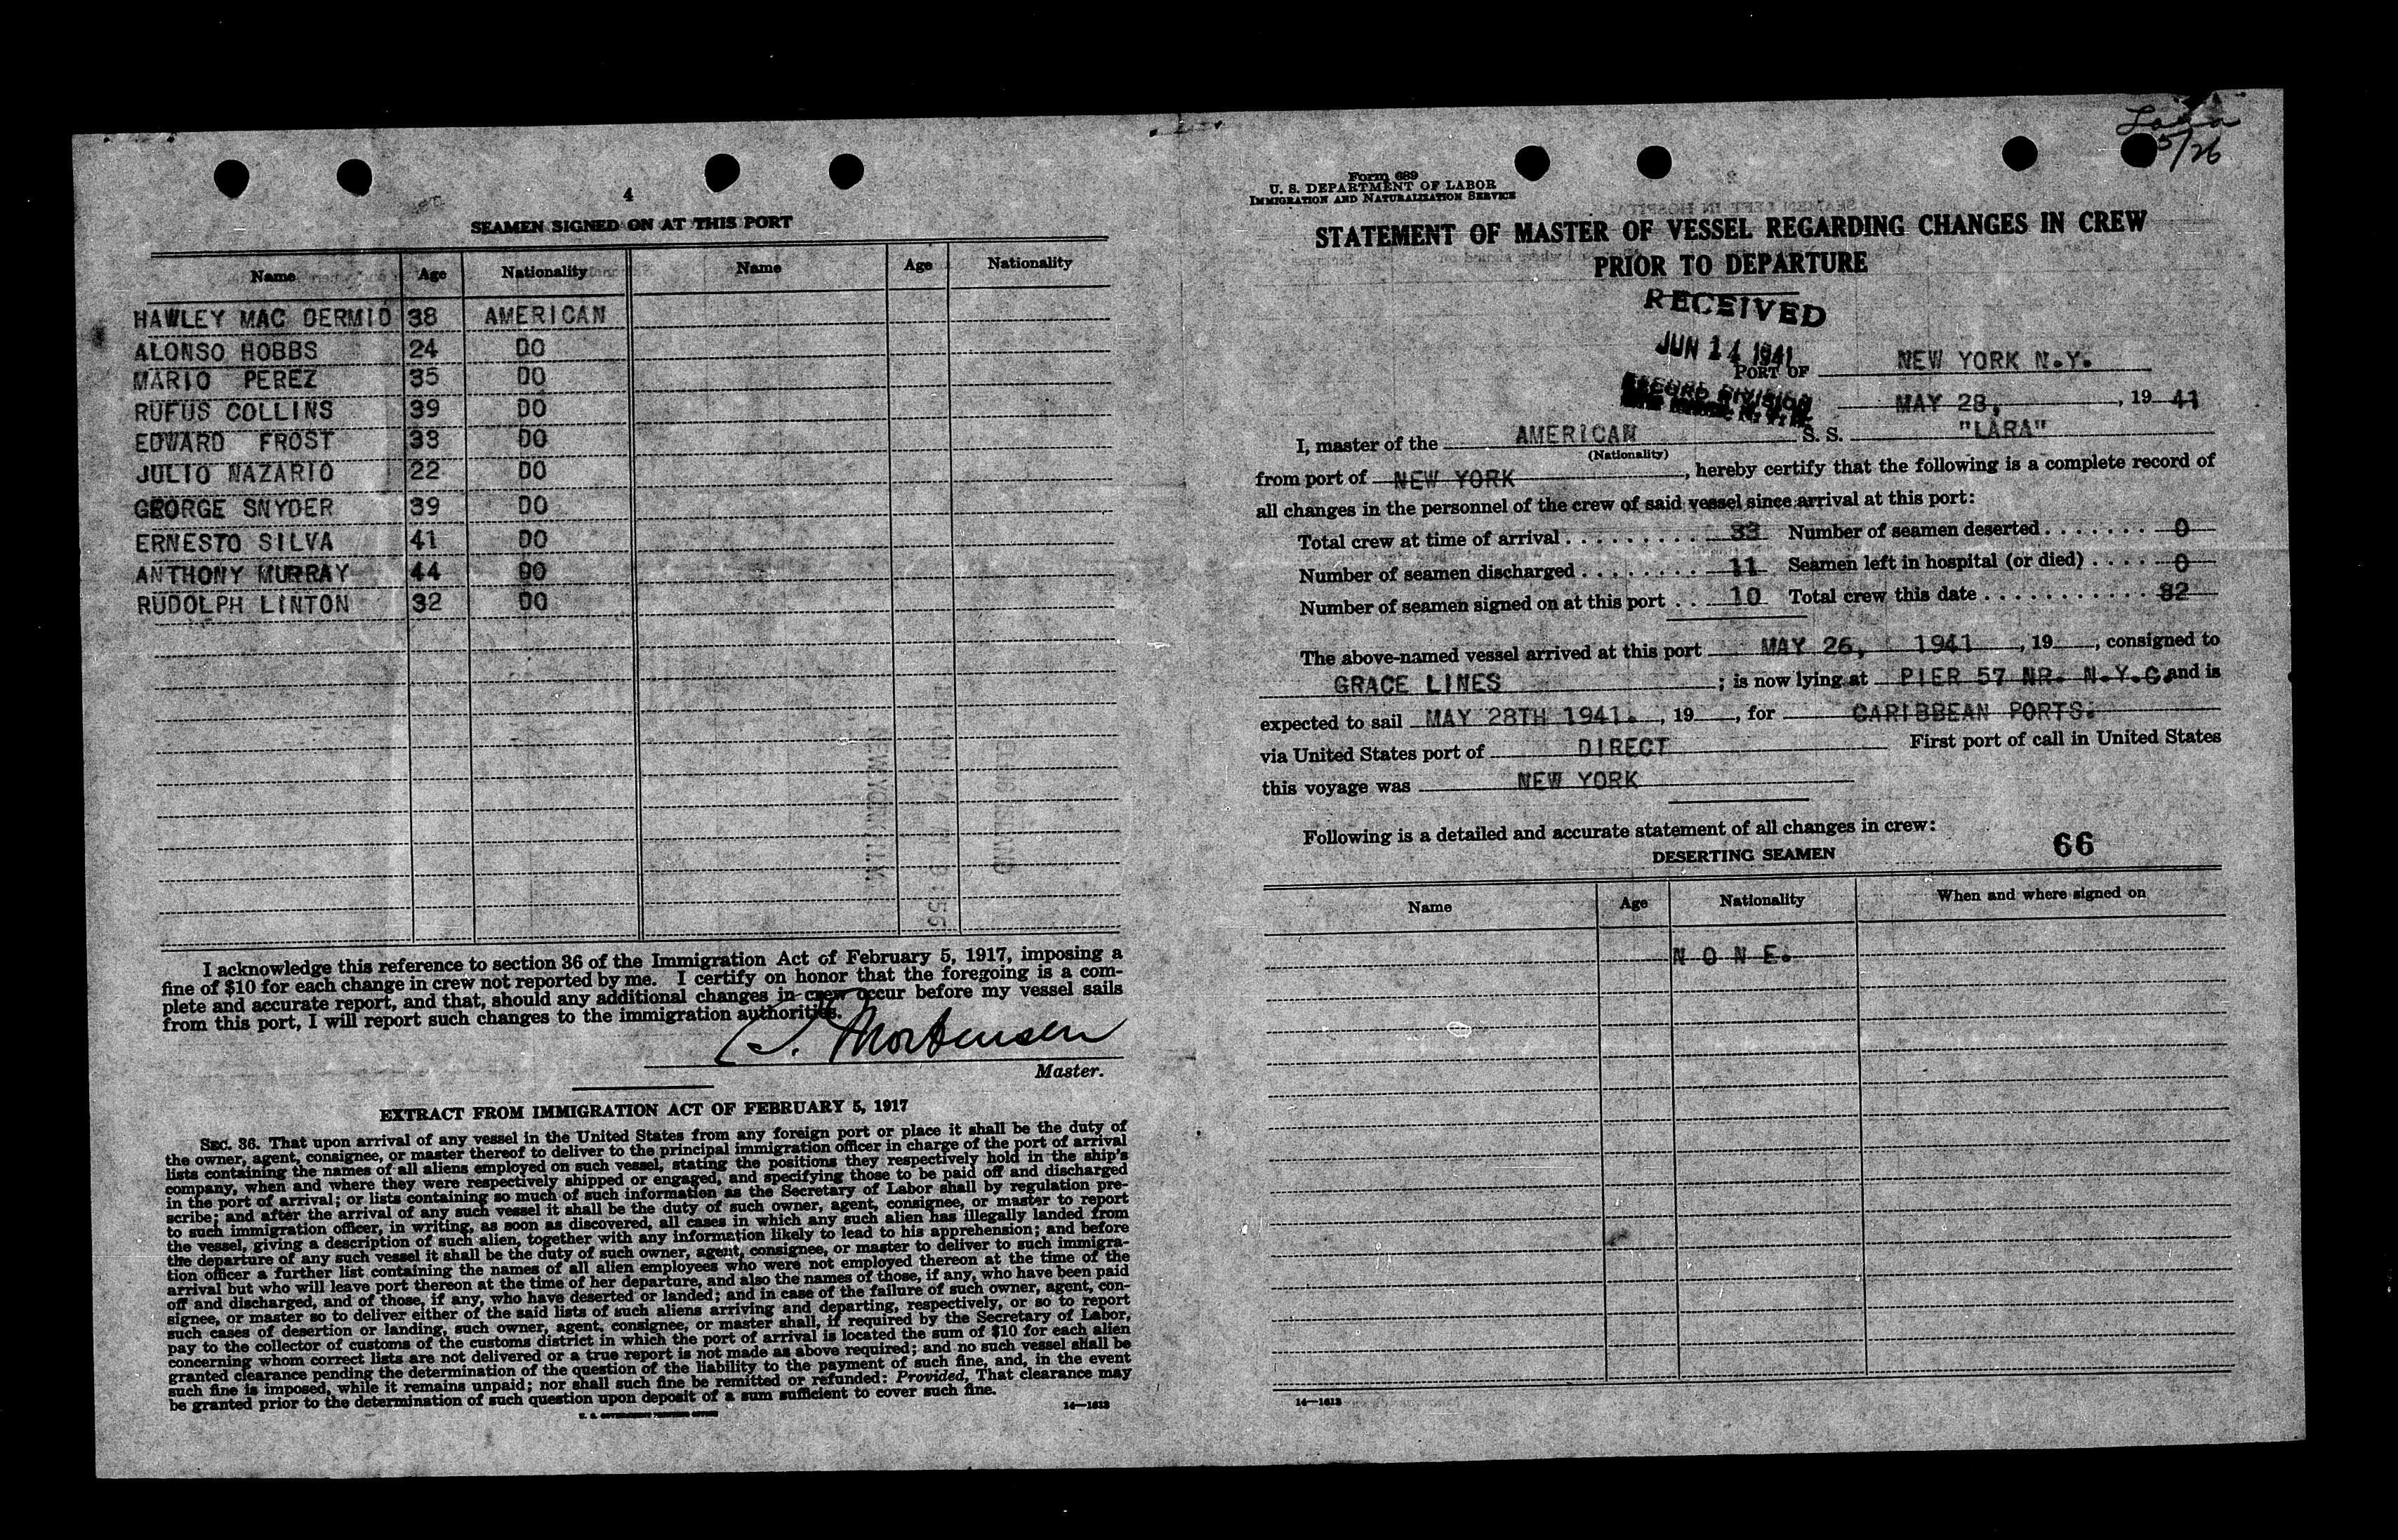 4
SEAMEN SIGNED ON AT THIS PORT
Name Age Nationality Name Age Nationality
HAWLEY MAC DERMID 38 AMERICAN
ALONSO HOBBS 24 DO
MARIO PEREZ 35 DO
RUFUS COLLINS 39 DO
EDWARD FROST 38 DO
JULIO NAZARIO 22 DO
GEORGE SNYDER 39 DO
ERNESTO SILVA 41 DO
ANTHONY MURRAY 44 DO
RUDOLPH LINTON 32 DO
I acknowledge this reference to section 36 of the Immigration Act of February 5, 1917, imposing a
fine of $10 for each change in crew not reported by me. I certify on honor that the foregoing is a com-
plete and accurate report, and that, should any additional changes in crew occur before my vessel sails
from this port, I will report such changes to the immigration authorities.
Mortensen
Master.
EXTRACT FROM IMMIGRATION ACT OF FEBRUARY 5, 1917
SEC. 36. That upon arrival of any vessel in the United States from any foreign port or place it shall be the duty of
the owner, agent, consignee, or master thereof to deliver to the principal immigration officer in charge of the port of arrival
lists containing the names of all aliens employed on such vessel, stating the positions they respectively hold in the ship's
company, when and where they were respectively shipped or engaged, and specifying those to be paid off and discharged
in the port of arrival; or lists containing so much of such information as the Secretary of Labor shall by regulation pre-
scribe; and after the arrival of any such vessel it shall be the duty of such owner, agent, consignee, or master to report
to such immigration officer, in writing, as soon as discovered, all cases in which any such alien has illegally landed from
the vessel, giving a description of such alien, together with any information likely to lead to his apprehension; and before
the departure of any such vessel it shall be the duty of such owner, agent, consignee, or master to deliver to such immigra-
tion officer a further list containing the names of all alien employees who were not employed thereon at the time of the
arrival but who will leave port thereon at the time of her departure, and also the names of those, if any, who have been paid
off and discharged, and of those, if any, who have deserted or landed; and in case of the failure of such owner, agent, con-
signee, or master so to deliver either of the said lists of such aliens arriving and departing, respectively, or so to report
such cases of desertion or landing, such owner, agent, consignee, or master shall, if required by the Secretary of Labor,
pay to the collector of customs of the customs district in which the port of arrival is located the sum of $10 for each alien
concerning whom correct lists are not delivered or a true report is not made as above required; and no such vessel shall be
granted clearance pending the determination of the question of the liability to the payment of such fine, and, in the event
such fine is imposed, while it remains unpaid; nor shall such fine be remitted or refunded: Provided, That clearance may
be granted prior to the determination of such question upon deposit of a sum sufficient to cover such fine.
U. S. GOVERNMENT PRINTING OFFICE 14—1613
Lara
5/26
Form 689
U. S. DEPARTMENT OF LABOR
IMMIGRATION AND NATURALIZATION SERVICE
STATEMENT OF MASTER OF VESSEL REGARDING CHANGES IN CREW
PRIOR TO DEPARTURE
RECEIVED
JUN 14 1941
RECORD DIVISION
PORT OF NEW YORK N.Y.
MAY 28, , 19 41
I, master of the AMERICAN S. S. "LARA"
(Nationality)
from port of NEW YORK , hereby certify that the following is a complete record of
all changes in the personnel of the crew of said vessel since arrival at this port:
Total crew at time of arrival . . . . . . . . . . 33 Number of seamen deserted . . . . . . . 0
Number of seamen discharged . . . . . . . . 11 Seamen left in hospital (or died) . . . . 0
Number of seamen signed on at this port . . 10 Total crew this date . . . . . . . . . . . 32
The above-named vessel arrived at this port MAY 26, 1941 , 19 , consigned to
GRACE LINES ; is now lying at PIER 57 NR. N.Y.C. and is
expected to sail MAY 28TH 1941. , 19 , for CARIBBEAN PORTS.
via United States port of DIRECT First port of call in United States
this voyage was NEW YORK
Following is a detailed and accurate statement of all changes in crew:
66
DESERTING SEAMEN
Name Age Nationality When and where signed on
N O N E.
14—1613